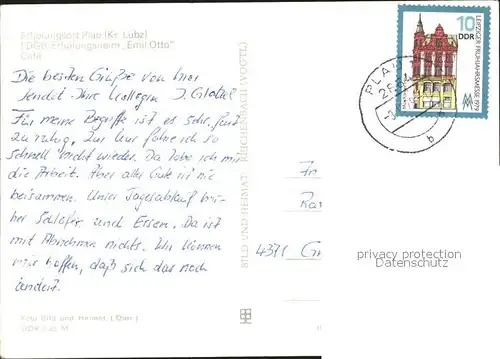 Erholungsort Plau (Kr. Lübz)
FDGB-Erholungsheim „Emil Otto"
Café
Die besten Grüße von hier
sendet Ihre Kollegin J. Glabel
Für meine Begriffe ist es sehr, fast
zu ruhig. Zur Kur fahre ich so
schnell nicht wieder. Da lobe ich mir
die Arbeit. Aber alles Gute ist nie
beisammen. Unser Tagesablauf
Schlafen und Essen. Da ist
mit Abnehmen nichts. Wir können
nur hoffen, daß sich das noch
ändert.
Foto Bild und Heimat
BILD UND HEIMAT REICHENBACH (VOGTL)
10
DDR
LEIPZIGER FRÜHJAHRSMESSE
PLAU
4371
privacy protection
Datenschutz